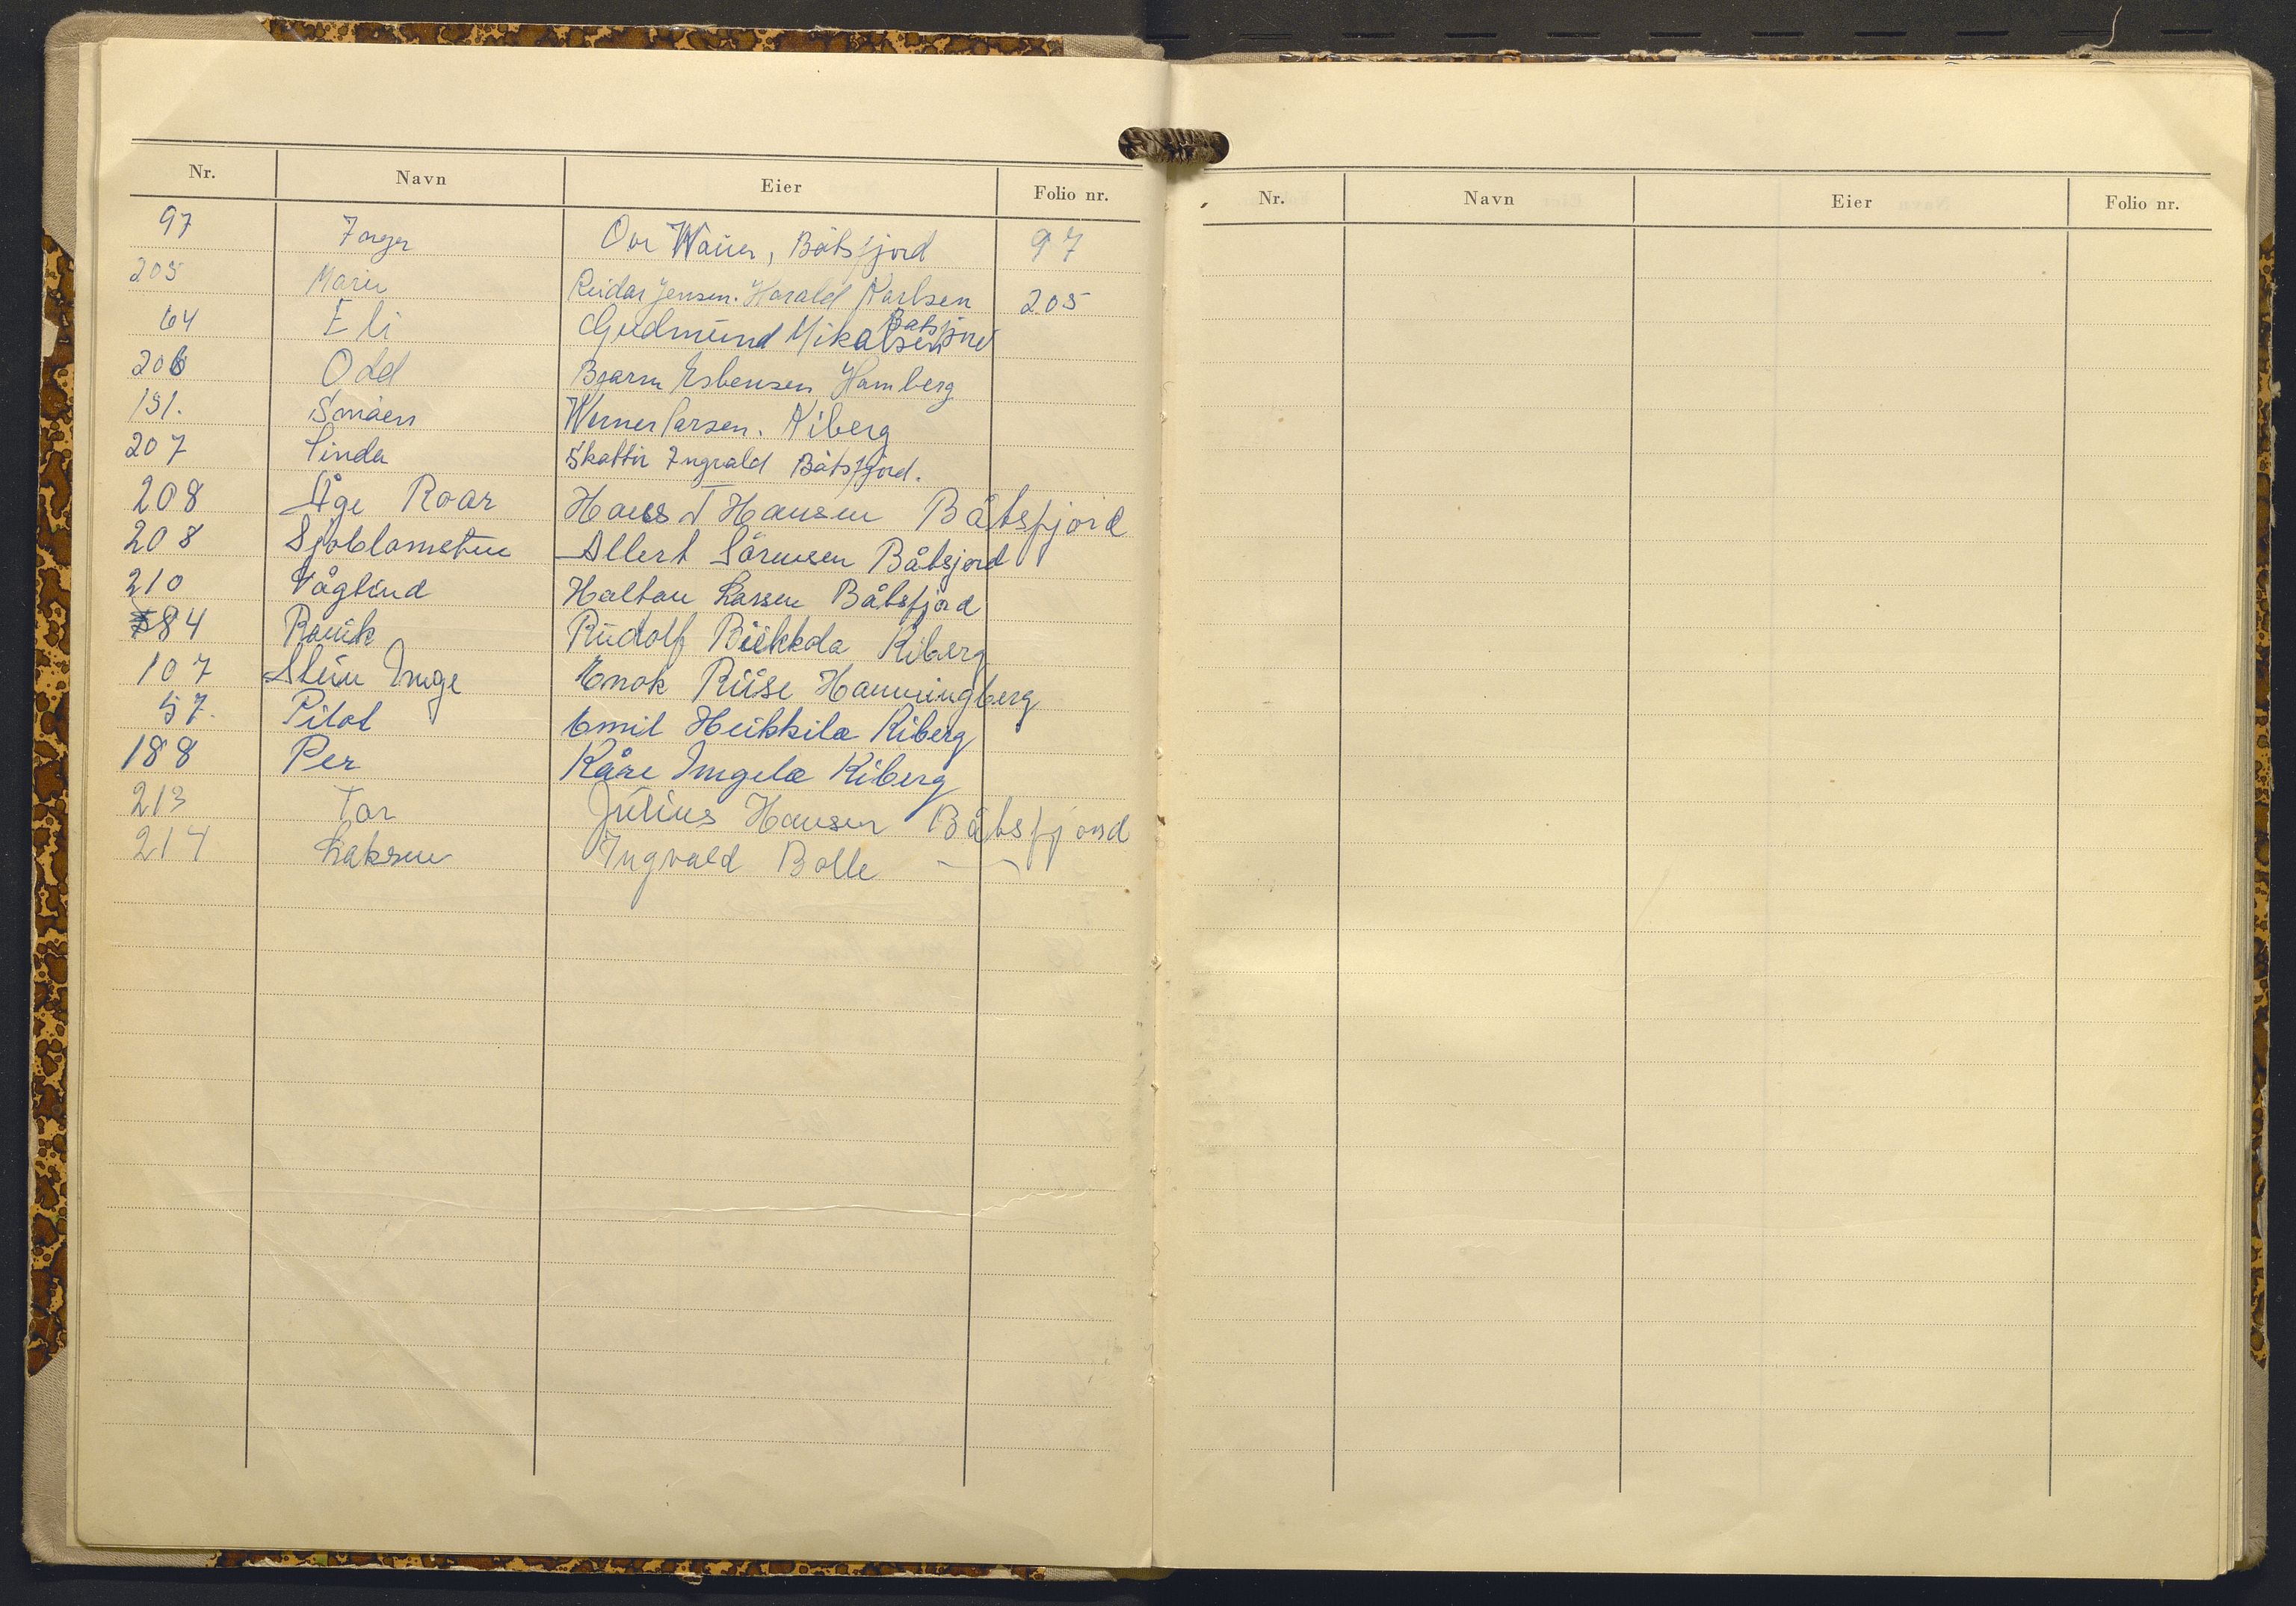 Nr. Navn Eier Folio nr.
97 Ove Wauer, Båtsfjord 97
205 Marie Reidar Jensen. Harald Karlsen 205
Batsfjord
64 Eli Gudmund Mikalsen
206 Odd Bjarne Esbensen Hamberg
191. Småen Werner Larsen. Kiberg
207 Linda Skattør Ingvald Båtsfjord.
208 Åge Roar Hans T Hansen Båtsfjord
208 Sjøblomsten Allert Sörensen Båtsjord
210 Vågbind Halfan Larsen Båtsfjord
84 Rauik Rudolf Biekkola Kiberg
107 Stein Inge Enok Riise Hamningberg
57. Pilot Emil Heikkila Kiberg
188 Per Kåre Ingela Kiberg
213 Tor Julius Hansen Båtsfjord
214 Laksen Ingvald Bolle —
Nr. Navn Eier Folio nr.